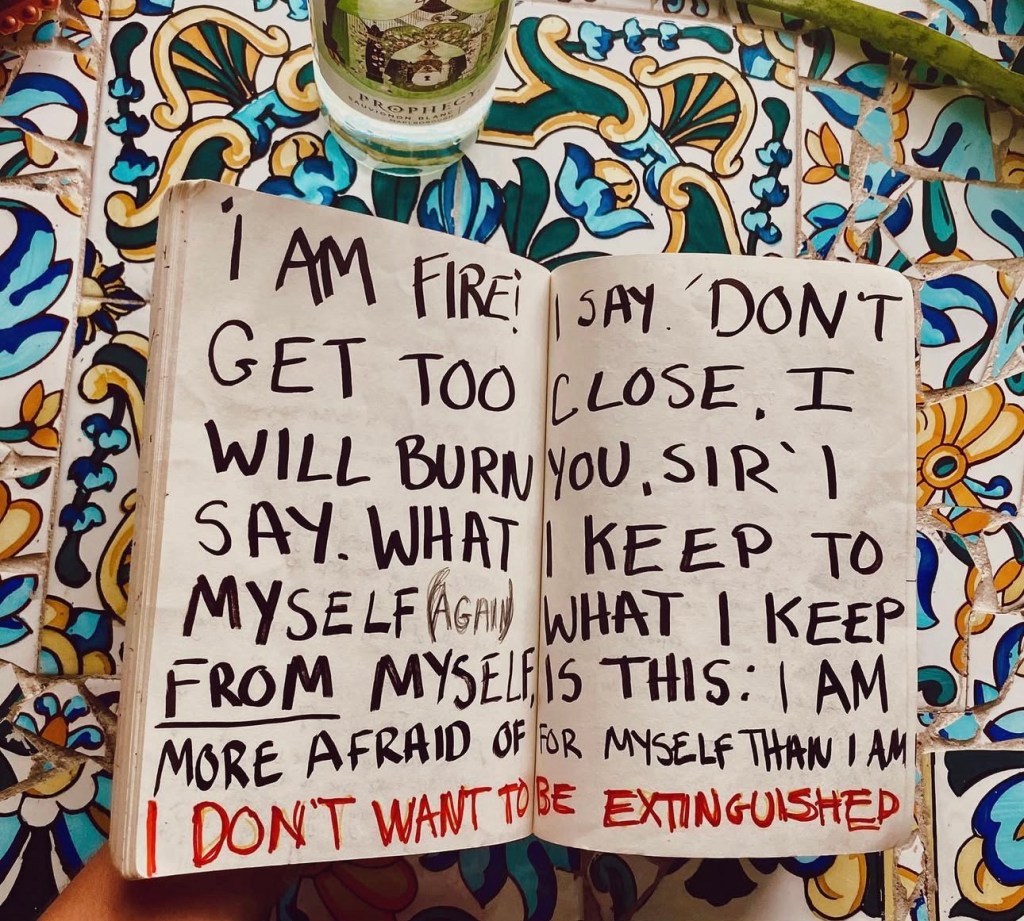 PROPHECY
SAUVIGNON BLANC
MARLBOROUGH
i AM FIRE! I SAY. 'DON'T
GET TOO CLOSE, I
WILL BURN YOU, SIR' I
SAY. WHAT I KEEP TO
MYSELF (AGAIN) WHAT I KEEP
FROM MYSELF, IS THIS: I AM
MORE AFRAID OF FOR MYSELF THAN I AM
I DON'T WANT TO BE EXTINGUISHED